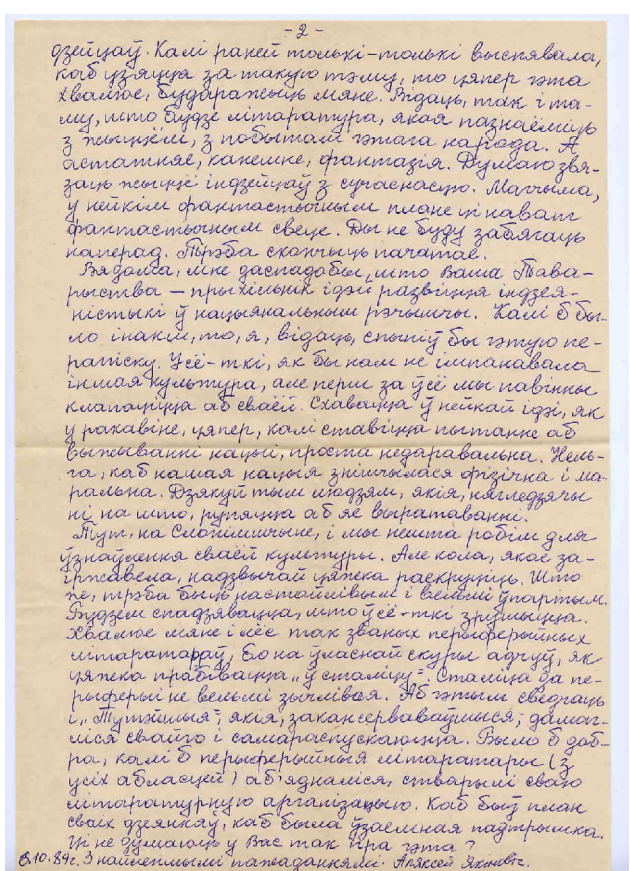 - 2 -
дзейцаў. Калі раней толькі-толькі выспявала,
каб узяцца за такую тэму, то цяпер гэта
хвалюе, бударажыць мяне. Відаць, так і та-
му, што будзе літаратура, якая пазнаёміць
з жыццём, з побытам гэтага народа. А
астатняе, канешне, фантазія. Думаю звя-
заць жыццё індзейцаў з сучаснасцю. Магчыма,
у нейкім фантастычным плане ці нават
фантастычным свеце. Ды не буду забягаць
наперад. Трэба скончыць пачатае.
Вядома, мне даспадобы, што Ваша Тава-
рыства — прыхільнік ідэй развіцця індзея-
ністыкі ў нацыянальным рэчышчы. Калі б бы-
ло інакш, то, я, відаць, спыніў бы гэтую пе-
рапіску. Усё-ткі, як бы нам не імпанавала
іншая культура, але перш за ўсё мы павінны
клапаціцца аб сваёй. Схавацца ў нейкай ідэі, як
у ракавіне, цяпер, калі ставіцца пытанне аб
выжыванні нацыі, проста недаравальна. Нель-
га, каб нашая нацыя знішчылася фізічна і ма-
ральна. Дзякуй тым людзям, якія, нягледзячы
ні на што, рупяцца аб яе выратаванні.
Тут, на Слонімшчыне, і мы нешта робім для
ўзнаўлення сваёй культуры. Але кола, якое за-
іржавела, надзвычай цяжка раскруціць. Што
ж, трэба быць настойлівым і вельмі ўпартым.
Будзем спадзявацца, што ўсё-ткі зрушыцца.
Хвалюе мяне і лёс так званых перыферыйных
літаратараў, бо на ўласнай скуры адчуў, як
цяжка прабівацца „ў сталіцу". Сталіца да пе-
рыферыі не вельмі зычлівая. Аб гэтым сведчаць
і „Тутэйшыя", якія, закансерваваўшыся, дамаг-
ліся свайго і самараспускаюцца. Было б доб-
ра, калі б перыферыйныя літаратары (з
усіх абласцей) аб'ядналіся, стварылі сваю
літаратурную арганізацыю. Каб быў план
сваіх дзеянняў, каб была ўзаемная падтрымка.
Ці не думаюць у Вас так пра гэта?
8.10.89г. З найлепшымі пажаданнямі. Аляксей Якімовіч.